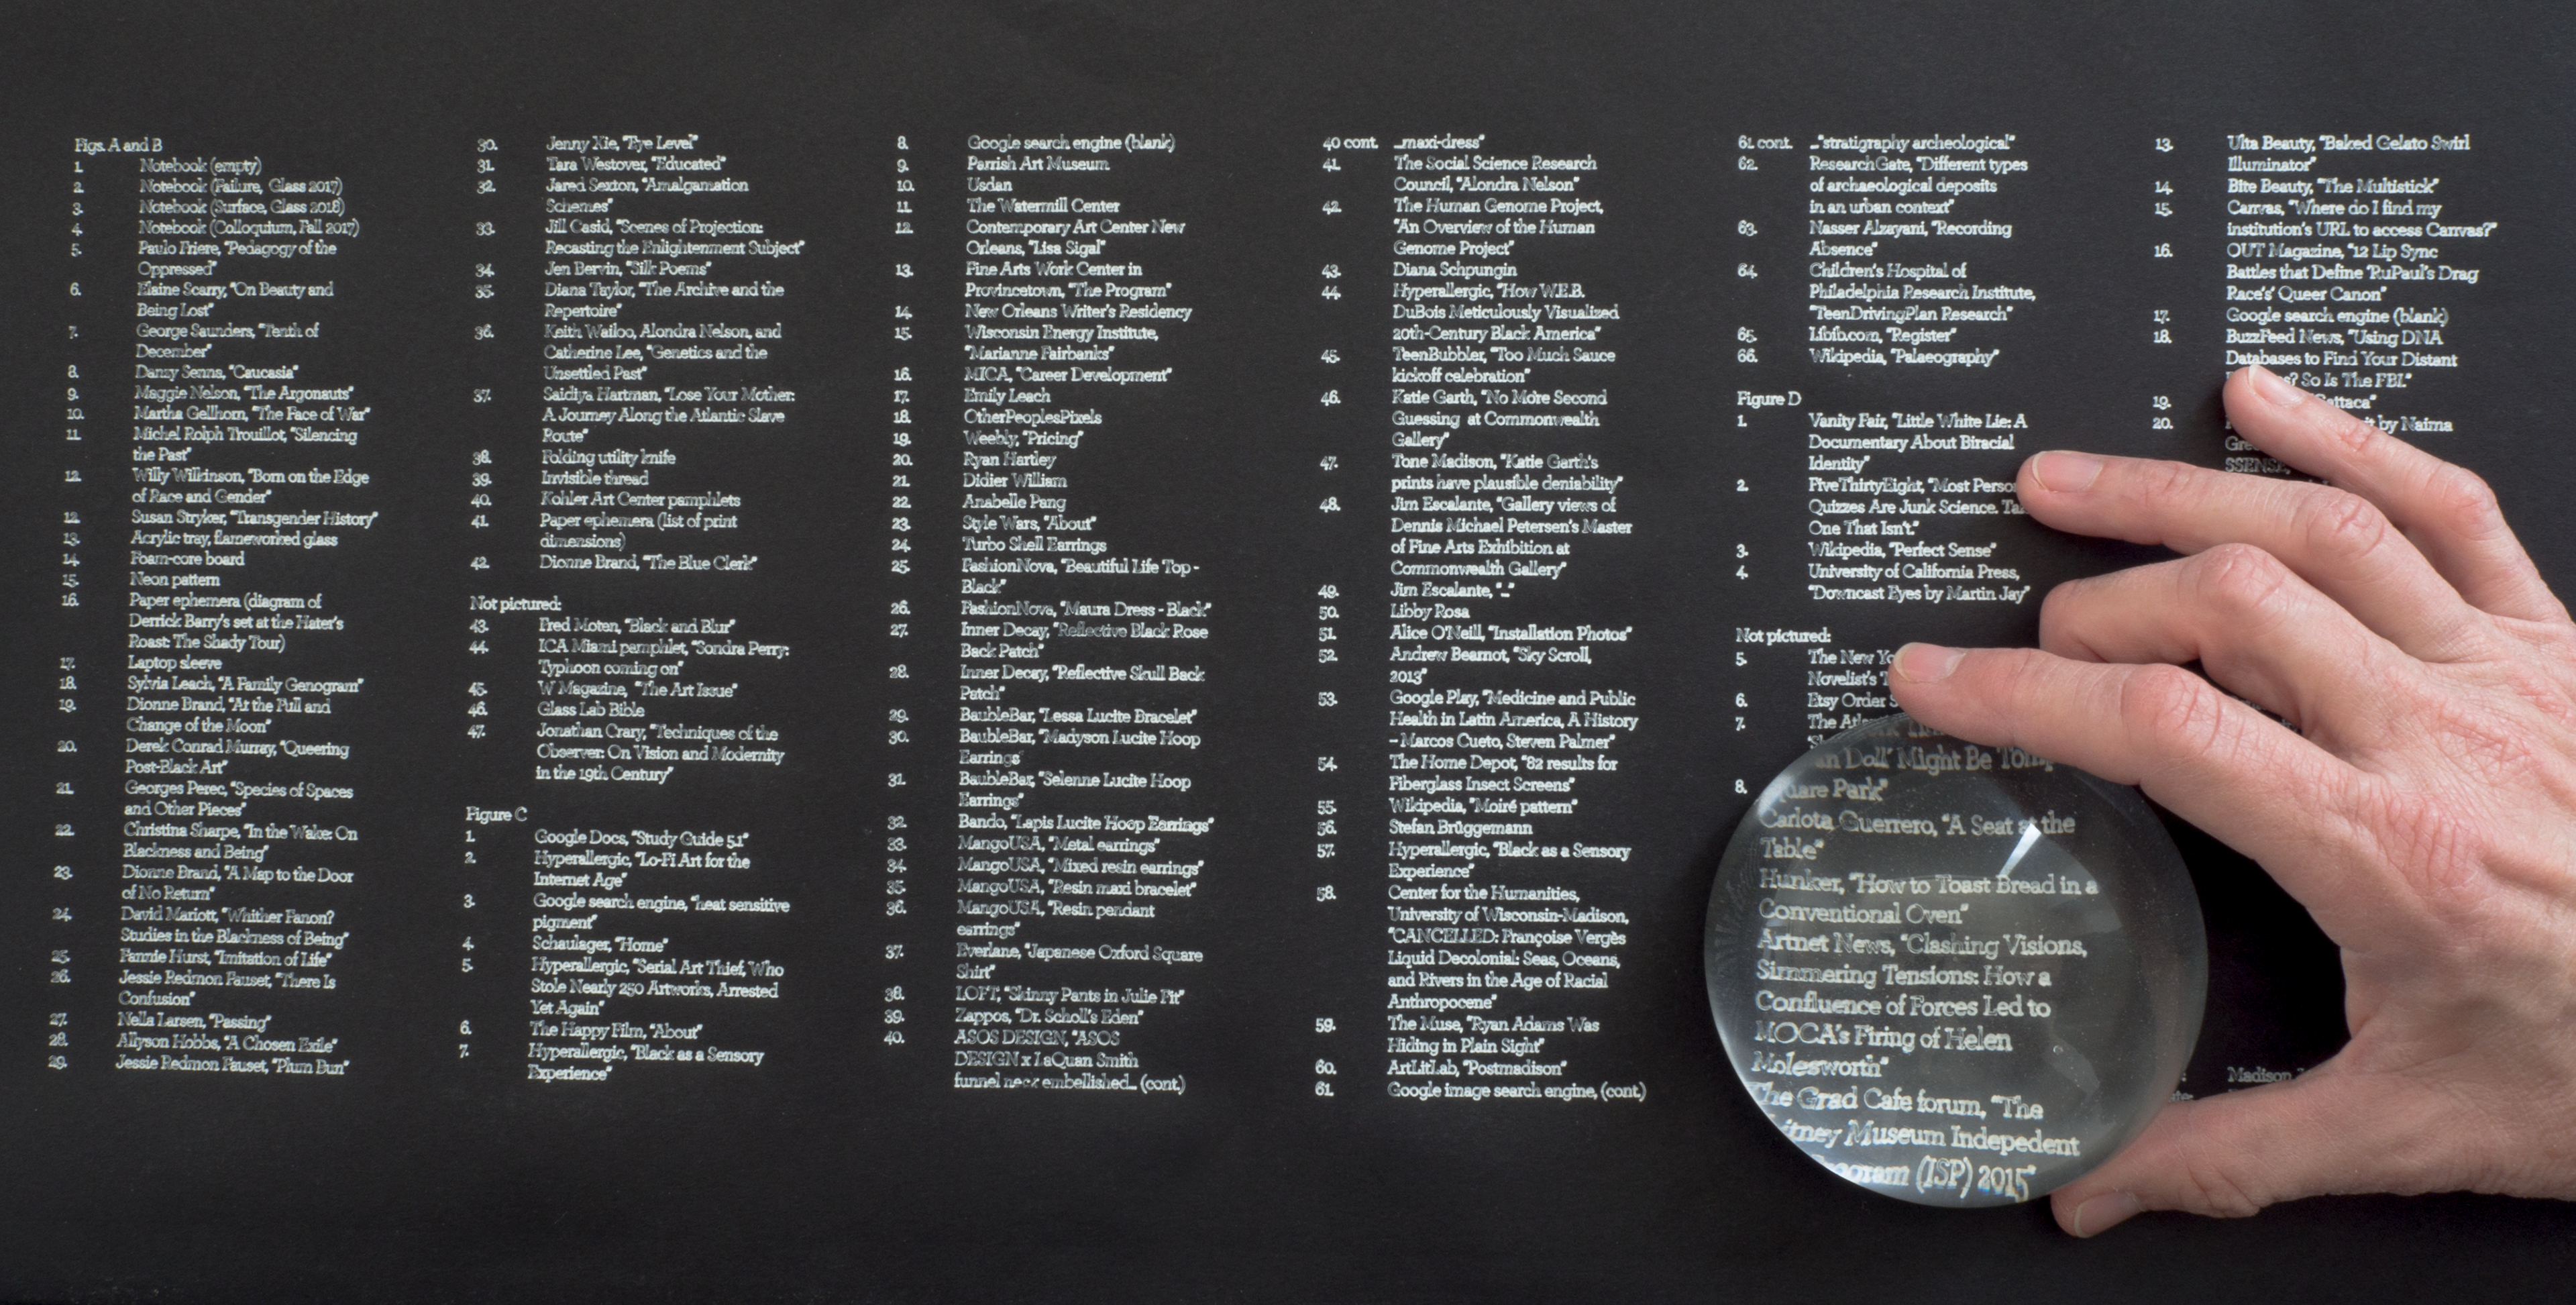 Figs. A and B
1. Notebook (empty)
2. Notebook (Failure, Glass 2017)
3. Notebook (Surface, Glass 2018)
4. Notebook (Colloquium, Fall 2017)
5. Paulo Friere, "Pedagogy of the
Oppressed"
6. Elaine Scarry, "On Beauty and
Being Lost"
7. George Saunders, "Tenth of
December"
8. Danzy Senna, "Caucasia"
9. Maggie Nelson, "The Argonauts"
10. Martha Gellhorn, "The Face of War"
11. Michel Rolph Trouillot, "Silencing
the Past"
12. Willy Wilkinson, "Born on the Edge
of Race and Gender"
12. Susan Stryker, "Transgender History"
13. Acrylic tray, flameworked glass
14. Foam-core board
15. Neon pattern
16. Paper ephemera (diagram of
Derrick Barry's set at the Hater's
Roast: The Shady Tour)
17. Laptop sleeve
18. Sylvia Leach, "A Family Genogram"
19. Dionne Brand, "At the Full and
Change of the Moon"
20. Derek Conrad Murray, "Queering
Post-Black Art"
21. Georges Perec, "Species of Spaces
and Other Pieces"
22. Christina Sharpe, "In the Wake: On
Blackness and Being"
23. Dionne Brand, "A Map to the Door
of No Return"
24. David Mariott, "Whither Fanon?
Studies in the Blackness of Being"
25. Fannie Hurst, "Imitation of Life"
26. Jessie Redmon Fauset, "There Is
Confusion"
27. Nella Larsen, "Passing"
28. Allyson Hobbs, "A Chosen Exile"
29. Jessie Redmon Fauset, "Plum Bun"
30. Jenny Xie, "Eye Level"
31. Tara Westover, "Educated"
32. Jared Sexton, "Amalgamation
Schemes"
33. Jill Casid, "Scenes of Projection:
Recasting the Enlightenment Subject"
34. Jen Bervin, "Silk Poems"
35. Diana Taylor, "The Archive and the
Repertoire"
36. Keith Wailoo, Alondra Nelson, and
Catherine Lee, "Genetics and the
Unsettled Past"
37. Saidiya Hartman, "Lose Your Mother:
A Journey Along the Atlantic Slave
Route"
38. Folding utility knife
39. Invisible thread
40. Kohler Art Center pamphlets
41. Paper ephemera (list of print
dimensions)
42. Dionne Brand, "The Blue Clerk"
Not pictured:
43. Fred Moten, "Black and Blur"
44. ICA Miami pamphlet, "Sondra Perry:
Typhoon coming on"
45. W Magazine, "The Art Issue"
46. Glass Lab Bible
47. Jonathan Crary, "Techniques of the
Observer: On Vision and Modernity
in the 19th Century"
Figure C
1. Google Docs, "Study Guide 5.1"
2. Hyperallergic, "Lo-Fi Art for the
Internet Age"
3. Google search engine, "heat sensitive
pigment"
4. Schaulager, "Home"
5. Hyperallergic, "Serial Art Thief, Who
Stole Nearly 250 Artworks, Arrested
Yet Again"
6. The Happy Film, "About"
7. Hyperallergic, "Black as a Sensory
Experience"
8. Google search engine (blank)
9. Parrish Art Museum
10. Usdan
11. The Watermill Center
12. Contemporary Art Center New
Orleans, "Lisa Sigal"
13. Fine Arts Work Center in
Provincetown, "The Program"
14. New Orleans Writer's Residency
15. Wisconsin Energy Institute,
"Marianne Fairbanks"
16. MICA, "Career Development"
17. Emily Leach
18. OtherPeoplesPixels
19. Weebly, "Pricing"
20. Ryan Hartley
21. Didier William
22. Anabelle Pang
23. Style Wars, "About"
24. Turbo Shell Earrings
25. FashionNova, "Beautiful Life Top -
Black"
26. FashionNova, "Maura Dress - Black"
27. Inner Decay, "Reflective Black Rose
Back Patch"
28. Inner Decay, "Reflective Skull Back
Patch"
29. BaubleBar, "Lessa Lucite Bracelet"
30. BaubleBar, "Madyson Lucite Hoop
Earrings"
31. BaubleBar, "Selenne Lucite Hoop
Earrings"
32. Bando, "Lapis Lucite Hoop Earrings"
33. MangoUSA, "Metal earrings"
34. MangoUSA, "Mixed resin earrings"
35. MangoUSA, "Resin maxi bracelet"
36. MangoUSA, "Resin pendant
earrings"
37. Everlane, "Japanese Oxford Square
Shirt"
38. LOFT, "Skinny Pants in Julie Fit"
39. Zappos, "Dr. Scholl's Eden"
40. ASOS DESIGN, "ASOS
DESIGN x LaQuan Smith
funnel neck embellished... (cont.)
40 cont. ...maxi-dress"
41. The Social Science Research
Council, "Alondra Nelson"
42. The Human Genome Project,
"An Overview of the Human
Genome Project"
43. Diana Schpungin
44. Hyperallergic, "How W.E.B.
DuBois Meticulously Visualized
20th-Century Black America"
45. TeenBubbler, "Too Much Sauce
kickoff celebration"
46. Katie Garth, "No More Second
Guessing at Commonwealth
Gallery"
47. Tone Madison, "Katie Garth's
prints have plausible deniability"
48. Jim Escalante, "Gallery views of
Dennis Michael Petersen's Master
of Fine Arts Exhibition at
Commonwealth Gallery"
49. Jim Escalante, "..."
50. Libby Rosa
51. Alice O'Neill, "Installation Photos"
52. Andrew Bearnot, "Sky Scroll,
2013"
53. Google Play, "Medicine and Public
Health in Latin America, A History
– Marcos Cueto, Steven Palmer"
54. The Home Depot, "82 results for
Fiberglass Insect Screens"
55. Wikipedia, "Moiré pattern"
56. Stefan Brüggemann
57. Hyperallergic, "Black as a Sensory
Experience"
58. Center for the Humanities,
University of Wisconsin-Madison,
"CANCELLED: Françoise Vergès
Liquid Decolonial: Seas, Oceans,
and Rivers in the Age of Racial
Anthropocene"
59. The Muse, "Ryan Adams Was
Hiding in Plain Sight"
60. ArtLitLab, "Postmadison"
61. Google image search engine, (cont.)
61 cont. ..."stratigraphy archeological"
62. ResearchGate, "Different types
of archaeological deposits
in an urban context"
63. Nasser Alzayani, "Recording
Absence"
64. Children's Hospital of
Philadelphia Research Institute,
"TeenDrivingPlan Research"
65. Libib.com, "Register"
66. Wikipedia, "Palaeography"
Figure D
1. Vanity Fair, "Little White Lie: A
Documentary About Biracial
Identity"
2. FiveThirtyEight, "Most
Quizzes Are Junk Science.
One That Isn't."
3. Wikipedia, "Perfect Sense"
4. University of California Press,
"Downcast Eyes by Martin Jay"
Not pictured:
5. The New
Novelist's
6. Etsy Order
7. The
Doll' Might Be
8. Park"
Carlota Guerrero, "A Seat at the
Table"
Hunker, "How to Toast Bread in a
Conventional Oven"
Artnet News, "Clashing Visions,
Simmering Tensions: How a
Confluence of Forces Led to
MOCA's Firing of Helen
Molesworth"
The Grad Cafe forum, "The
Museum Indepedent
(ISP) 2015"
13. Ulta Beauty, "Baked Gelato Swirl
Illuminator"
14. Bite Beauty, "The Multistick"
15. Canvas, "Where do I find my
institution's URL to access Canvas?"
16. OUT Magazine, "12 Lip Sync
Battles that Define 'RuPaul's Drag
Race's' Queer Canon"
17. Google search engine (blank)
18. BuzzFeed News, "Using DNA
Databases to Find Your Distant
So Is The FBI."
19. Gattaca"
20. by Naima
SSENSE,
Madison